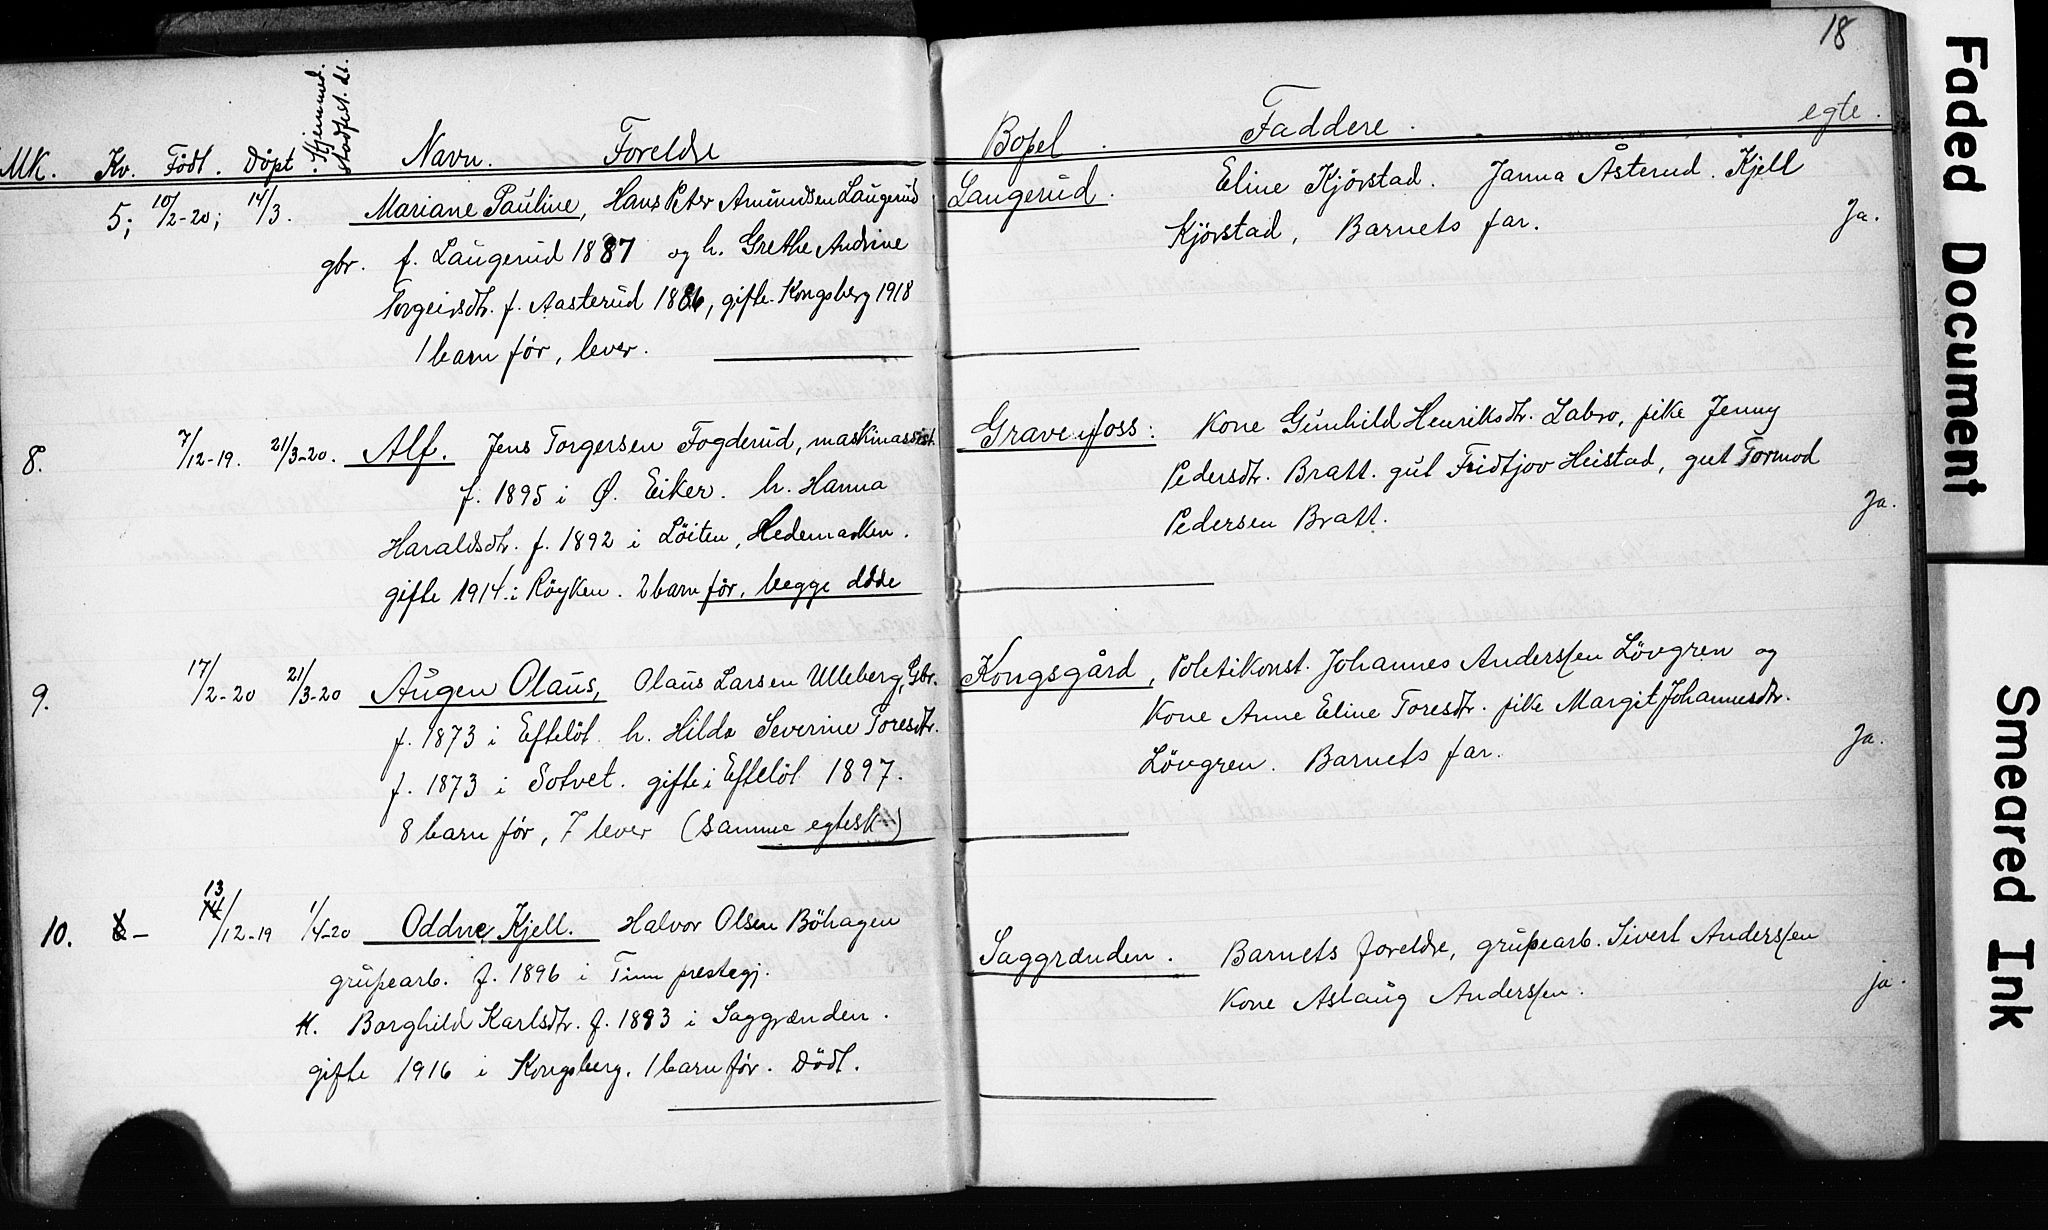 18
Mk. Kv. Födt. Döpt. Hjemmed. stadfest. dt. Navn. Foreldre Bopel. Faddere. egte.
5; 10/2-20; 14/3. Mariane Pauline, Hans Peter Amundsen Laugerud
gbr. f. Laugerud 1887 og h. Grethe Andrine
Torgeirsdtr. f. Aasterud 1886, gifte Kongsberg 1918
1 barn før, lever.
Laugerud. Eline Kjörstad. Janna Åsterud. Kjell
Kjörstad, Barnets far. Ja.
8. 7/12-19. 21/3-20. Alf. Jens Torgersen Fogderud, maskinassist.
f. 1895 i Ø. Eiker. h. Hanna
Haraldsdtr. f. 1892 i Löiten, Hedemarken.
gifte 1914 i Röyken. 2 barn før, begge døde
Gravenfoss: Kone Gunhild Henriksdtr. Labro, pike Jenny
Pedersdtr. Bratt. gut Fridtjov Heistad, gut Tormod
Pedersen Bratt. Ja.
9. 17/2-20 21/3-20 Augen Olaus, Olaus Larsen Ulleberg, Gbr.
f. 1873 i Efteløt. h. Hilda Severine Toresdtr.
f. 1873 i Sotvet. gifte i Efteløt 1897.
8 barn før, 7 lever (samme egtesk)
Kongsgård, Politikonst. Johannes Anderssen Lövgren og
Kone Anne Eline Toresdtr. pike Margit Johannesdtr.
Lövgren. Barnets far. Ja.
10. 13/12-19 1/4-20 Oddne Kjell. Halvor Olsen Böhagen
grubearb. f. 1896 i Tinn prestegj.
H. Borghild Karlsdtr. f. 1893 i Saggrænden.
gifte 1916 i Kongsberg. 1 barn før. Dödt.
Saggrænden. Barnets foreldre, grubearb. Sivert Anderssen
Kone Aslaug Anderssen. ja.
Faded Document
Smeared Ink